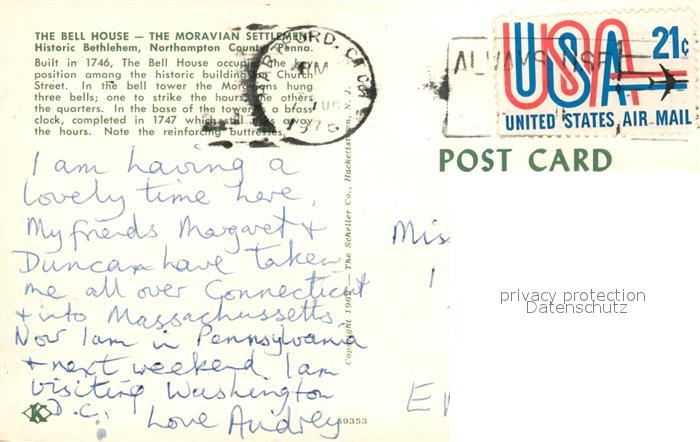 THE BELL HOUSE — THE MORAVIAN SETTLEMENT
Historic Bethlehem, Northampton County, Penna.
Built in 1746, The Bell House
position among the historic buildings Church
Street. In the bell tower the Moravians hung
three bells; one to strike the hours, the others
the quarters. In the base of the tower is a brass
clock, completed in 1747 which still away
the hours. Note the reinforcing buttresses.
I am having a
lovely time here,
My friends Margaret &
Duncan have taken
me all over Connecticut
& into Massachussetts.
Now I am in Pennsylvania
& next weekend I am
visiting Washington
D.C. Love Audrey
K
59353
Copyright The Scheller Co., Hackettstown, N. J.
PM
ALWAYS USE
USA 21¢
UNITED STATES AIR MAIL
POST CARD
Mis
1
privacy protection
Datenschutz
E